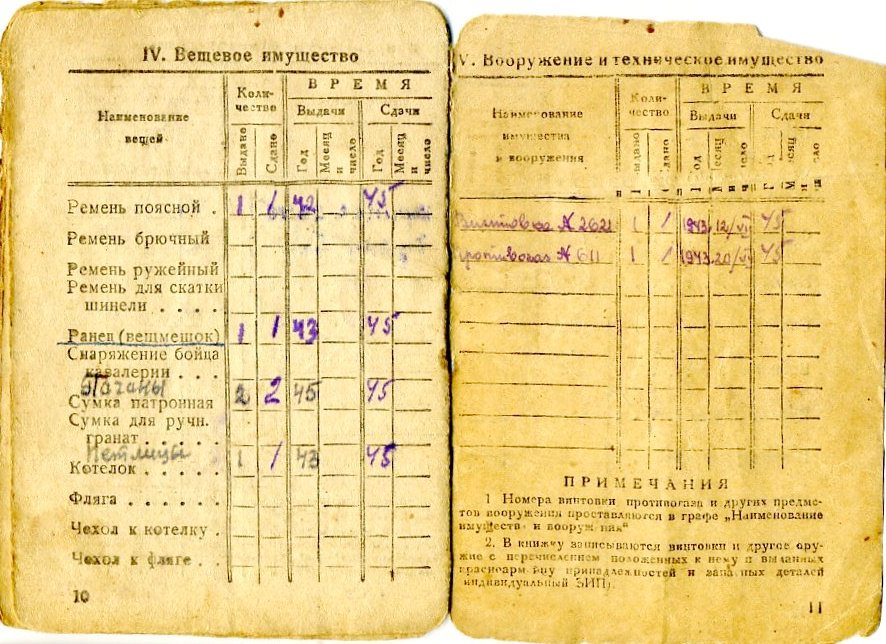 IV. Вещевое имущество
Наименование вещей
Коли-
чество
ВРЕМЯ
Выдачи
Сдачи
Выдано
Сдано
Год
Месяц и число
Год
Месяц и число
Ремень поясной . 1 1 42 45
Ремень брючный
Ремень ружейный
Ремень для скатки
шинели . . . .
Ранец (вещмешок) 1 1 43 45
Снаряжение бойца
кавалерии . . .
Погоны
Сумка патронная 2 2 45 45
Сумка для ручн.
гранат . . . . .
Петлицы
Котелок . . . . . 1 1 43 45
Фляга . . . . . .
Чехол к котелку .
Чехол к фляге . .
10
V. Вооружение и техническое имущество
Наименование
имущества
и вооружения
Коли-
чество
ВРЕМЯ
Выдачи
Сдачи
Выдано
Сдано
Год
Месяц и число
Год
Месяц и
Винтовка № 2621 1 1 1943 12/VII 45
противогаз № 611 1 1 1943 20/VII 45
ПРИМЕЧАНИЯ
1 Номера винтовки противогаза и других предме-
тов вооружения проставляются в графе „Наименование
имущества и вооружения“
2. В книжку записываются винтовки и другое ору-
жие с перечислением положенных к нему и выданных
красноармейцу принадлежностей и запасных деталей
индивидуальный ЗИП).
11